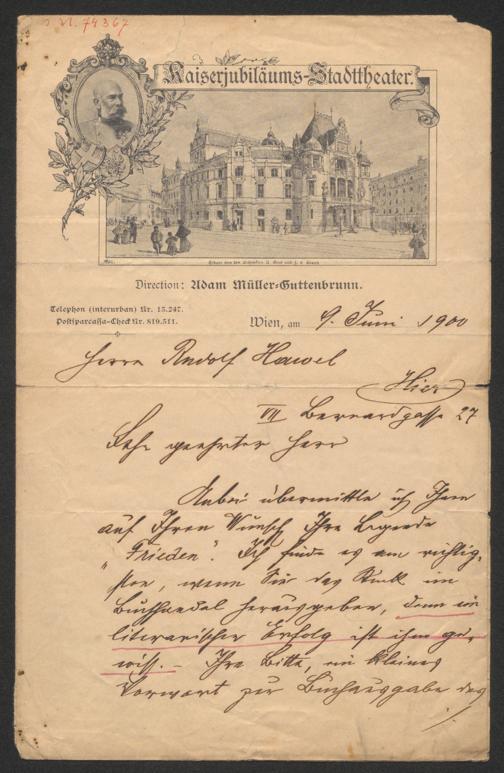 J. N. 74367
Kaiserjubiläums-Stadttheater.
Direction: Adam Müller-Guttenbrunn.
Telephon (interurban) Nr. 15.247.
Postsparcassa-Check Nr. 819.511.
Wien, am 9. Juni 1900
Herrn Rudolf Hawel
Hier
VII Bernardgasse 27
Sehr geehrter Herr
Anbei übermittle ich Ihnen
auf Ihren Wunsch Ihre Legende
„Frieden". Ich finde es am richtig-
sten, wenn Sie das Stück im
Buchhandel herausgeben, denn ein
literarischer Erfolg ist ihm ge-
wiss. – Ihre Bitte, ein kleines
Vorwort zur Buchausgabe des